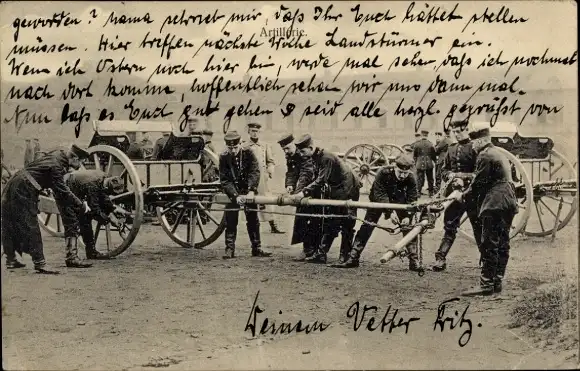 geworden? Mama schreibt mir, daß Ihr Euch hättet stellen
Artillerie.
müssen. Hier treffen nächste Woche Landstürmer ein.
Wenn ich Ostern noch hier bin, werde mal sehen, daß ich nochmal
nach dort komme hoffentlich sehen wir uns dann mal.
Nun laßs es Euch gut gehen & seid alle herzl. gegrüßt von
Deinem Vetter Fritz.